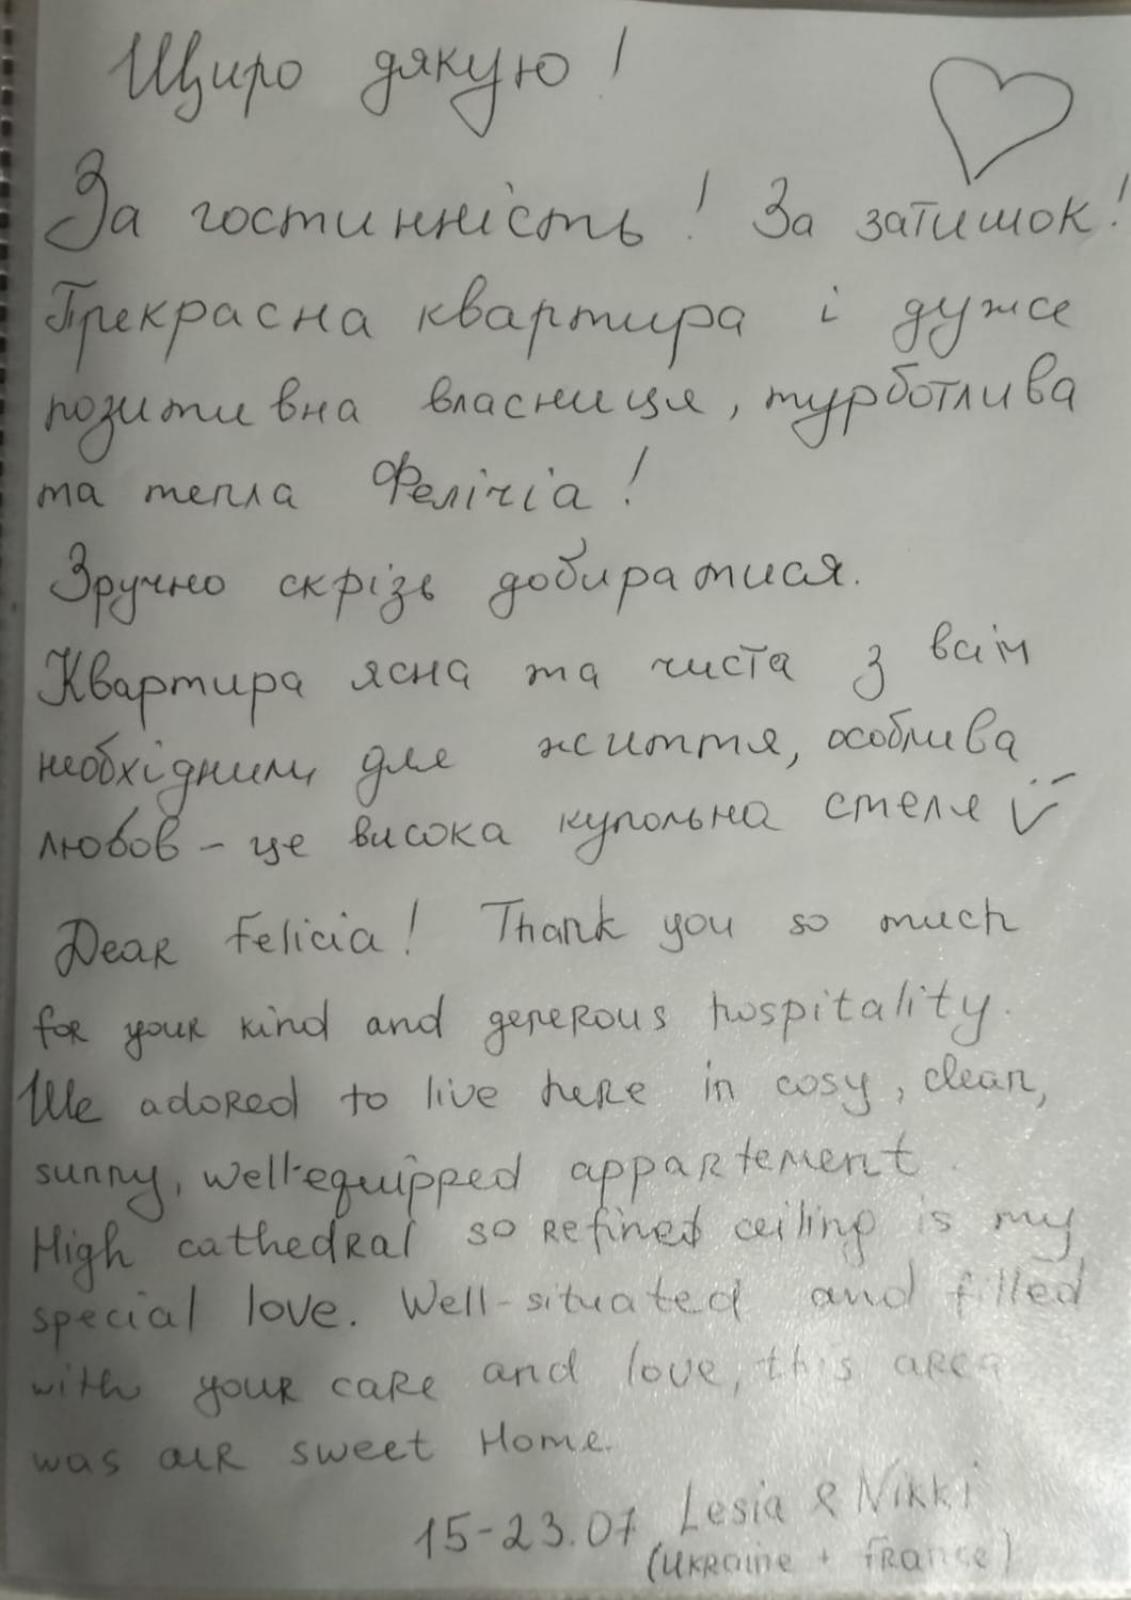 Щиро дякую!
За гостинність! За затишок!
Прекрасна квартира і дуже
позитивна власниця, турботлива
та тепла Фелічіа!
Зручно скрізь добиратися.
Квартира ясна та чиста з всім
необхідним для життя, особлива
любов – це висока купольна стеля
Dear Felicia! Thank you so much
for your kind and generous hospitality.
We adored to live here in cosy, clean,
sunny, well-equipped appartement.
High cathedral so refined ceiling is my
special love. Well-situated and filled
with your care and love, this area
was our sweet Home.
15-23.07 Lesia & Nikki
(Ukraine + France)